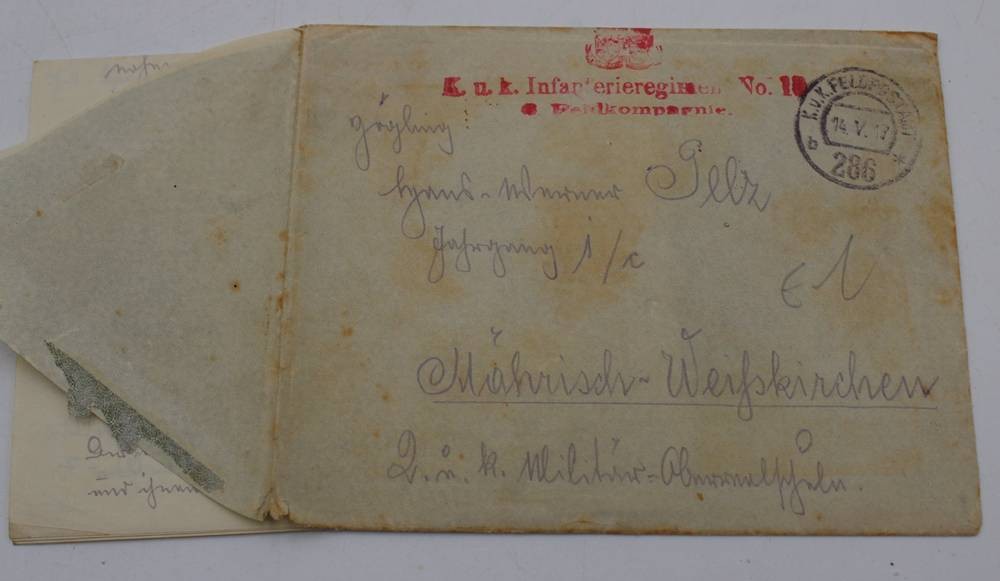 K. u. k. Infanterieregiment No.
Feldkompagnie.
K.u.K. FELDPOSTAMT
14. V. 17
b *
286
Zögling
Hans-Werner Pelz
Jahrgang 1/c
Mährisch-Weißkirchen
K. u. k. Militär-Oberrealschule.
und ihnen